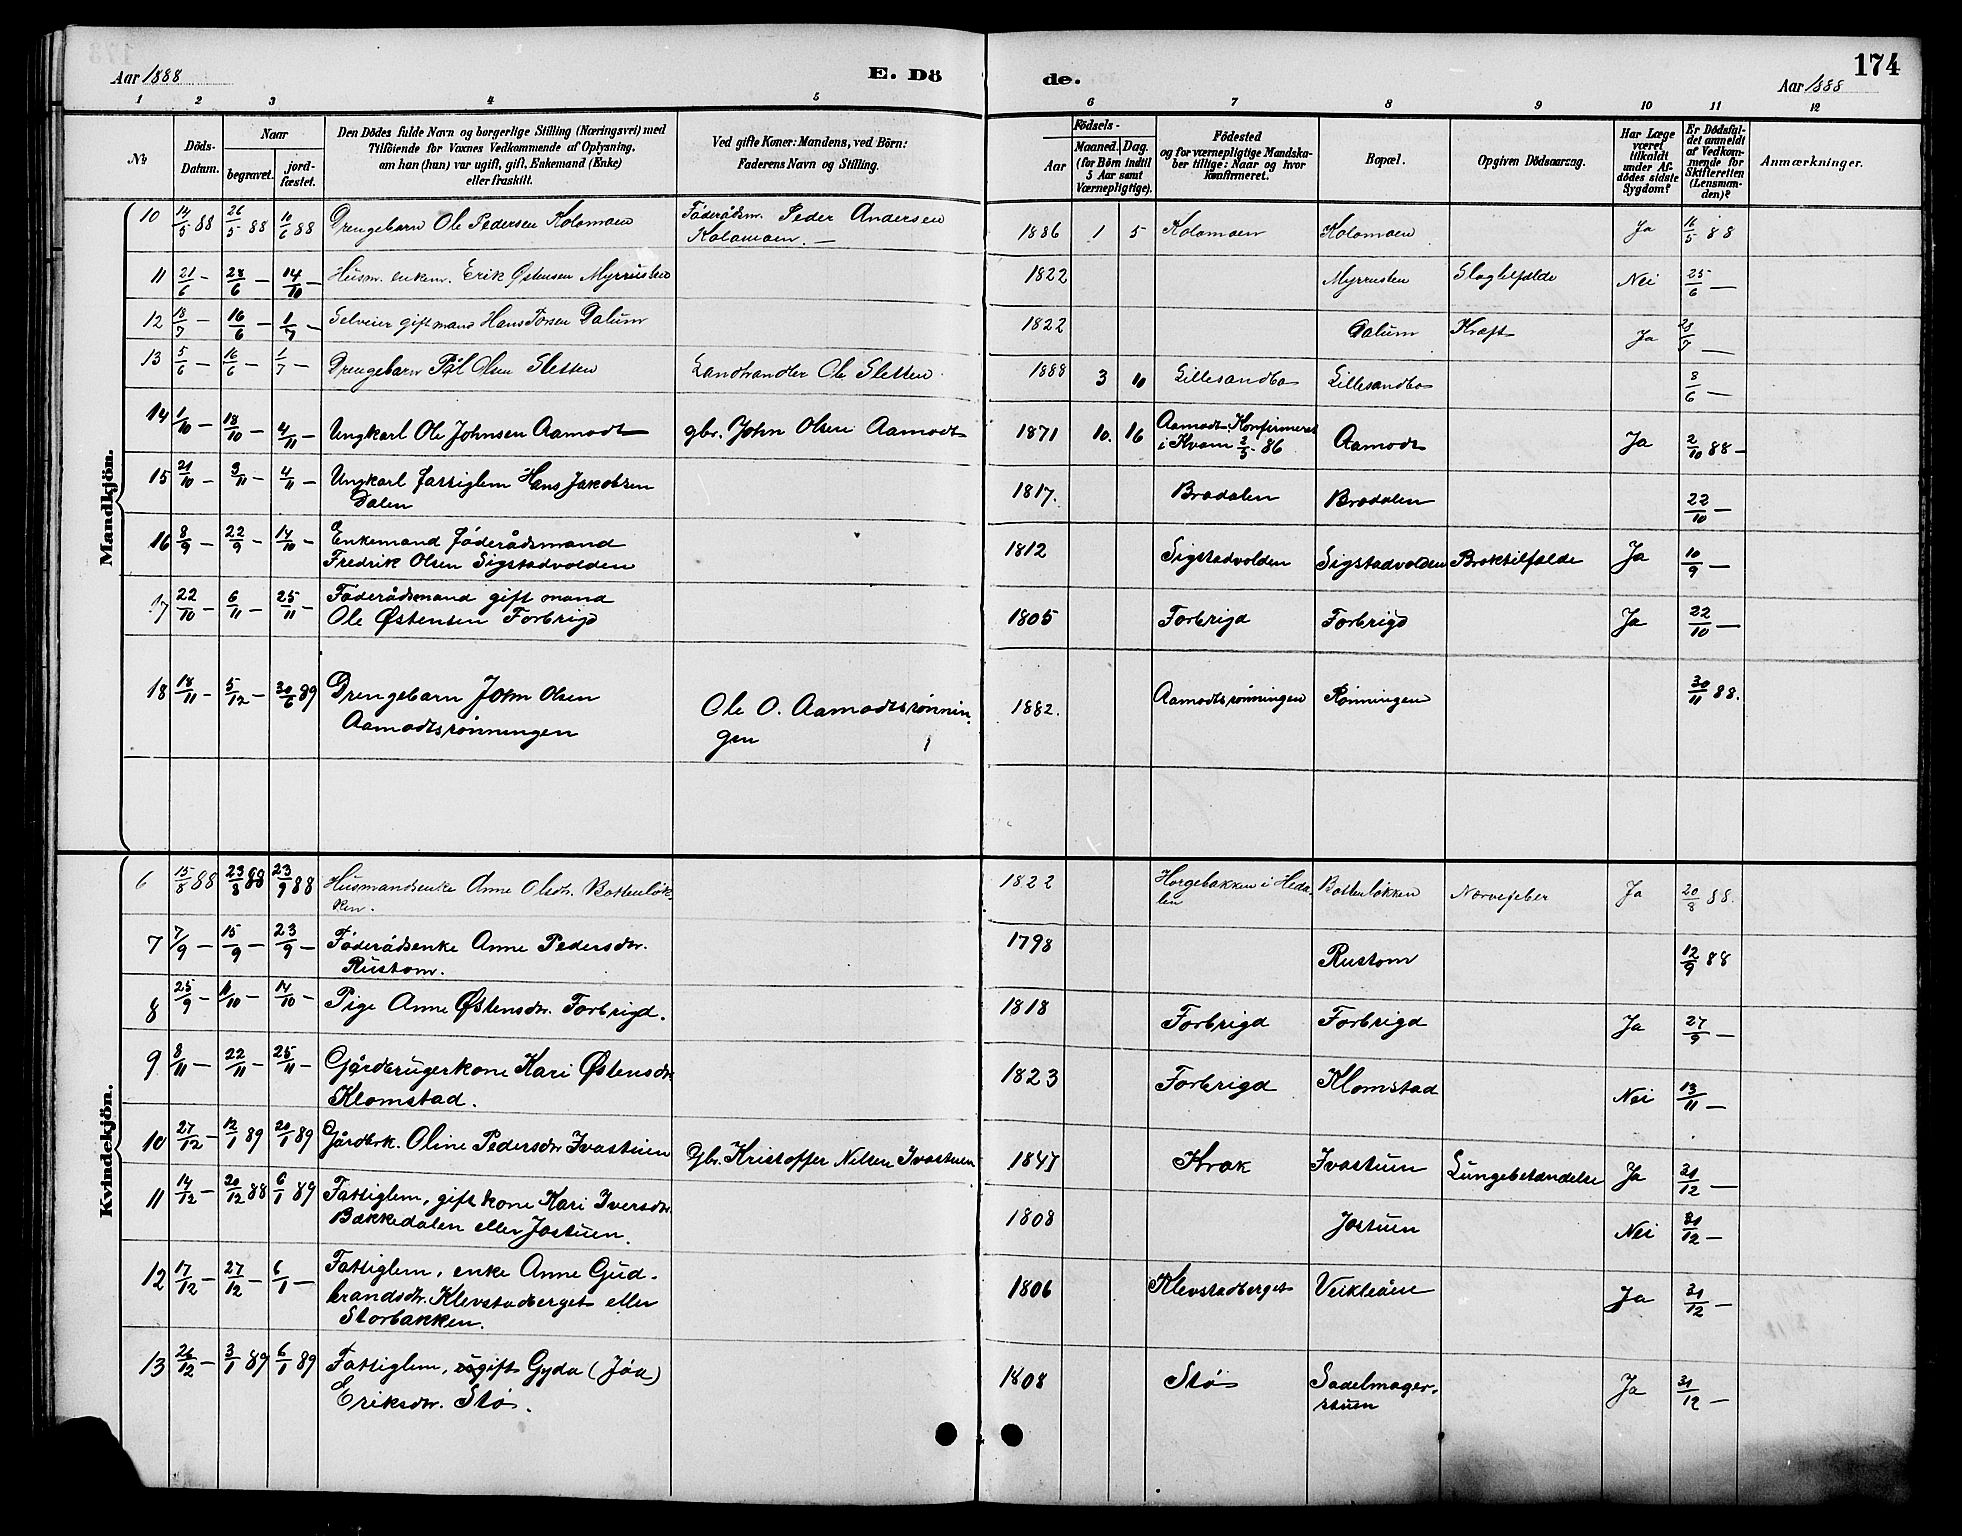 Aar 1888
E. Dö
de.
174
Aar 1888
1 2 3 4 5 6 7 8 9 10 11 12
No
Döds-Datum.
Naar
begravet.
jord-fæstet.
Den Dödes fulde Navn og borgerlige Stilling (Næringsvei) med
Tilföiende for Voxnes Vedkommende af Oplysning,
om han (hun) var ugift, gift, Enkemand (Enke)
eller fraskilt.
Ved gifte Koner: Mandens, ved Börn:
Faderens Navn og Stilling.
Födsels-
Aar
Maaned. Dag.
(for Börn indtil
5 Aar samt
Værnepligtige).
Födested
og for værnepligtige Mandska-
ber tillige: Naar og hvor
konfirmeret.
Bopæl.
Opgiven Dödsaarsag.
Har Læge
været
tilkaldt
under Af-
dödes sidste
Sygdom?
Er Dödsfal-
det anmeldt
af Vedkom-
mende for
Skifteretten
(Lensman-
den)?
Anmærkninger.
Mandkjön.
10 14/5 88 26/5 88 10/6 88 Drengebarn Ole Pedersen Kolomoen Föderådsm. Peder Andersen 1886 1 5 Kolomoen Kolomoen Ja 16/5 88
Kolomoen. —
11 21/6 — 28/6 — 14/10 — Husm. enkem. Erik Østensen Myrrusten 1822 Myrrusten Slagtilfælde Nei 25/6 —
12 18/7 — 16/6 — 1/7 — Selveier gift mand Hans Torsen Dalum 1822 Dalum Kræft Ja 28/7 —
13 5/6 — 16/6 — 1/7 — Drengebarn Pål Olsen Sletten Landhandler Ole Sletten. 1888 3 10 Lillesandbo Lillesandbo 8/6 —
14 1/10 — 18/10 — 4/11 — Ungkarl Ole Johnsen Aamodt gbr. John Olsen Aamodt 1871 10. 16 Aamodt. Konfirmeret
i Kvam 2/5 - 86 Aamodt Ja 2/10 88 —
15 21/10 — 3/11 — 4/11 — Ungkarl fattiglem Hans Jakobsen
Dalen 1817. Brodalen Brodalen 22/10 —
16 8/9 — 22/9 — 14/10 — Enkemand föderådsmand
Fredrik Olsen Sigstadvolden 1812 Sigstadvolden Sigstadvolden Broktilfælde Ja 10/9 —
17 22/10 — 6/11 — 25/11 — Föderådsmand gift mand
Ole Østensen Forbrigd 1805 Forbrigd Forbrigd Ja 22/10 —
18 18/11 — 5/12 — 30/6 89 Drengebarn John Olsen
Aamodtsrönningen Ole O. Aamodtsrönnin.
gen 1882. Aamodtsrönningen Rönningen 30/11 88.
Kvindekjön.
6 15/8 88 23/8 88 23/9 88 Husmandsenke Anne Olsdtr. Bottenløk
ken. 1822 Horgebakken i Heda
len Bottenløkken Nervefeber Ja 20/8 88.
7 7/9 — 15/9 — 23/9 — Föderådsenke Anne Pedersdtr.
Rustom. 1798 Rustom 12/9 88
8 25/9 — 11/10 — 14/10 — Pige Anne Østensdtr. Forbrigd. 1818 Forbrigd Forbrigd Ja 27/9 —
9 8/11 — 22/11 — 25/11 — Gårdbrugerkone Kari Østensdtr.
Klomstad. 1823 Forbrigd Klomstad Nei 13/11 —
10 27/12 — 12/1 89 20/1 89 Gårdbrk. Oline Pedersdtr Ivastuen Gbr. Kristoffer Nilsen Ivastuen 1847 Krok Ivastuen Lungebetændelse Ja 31/12 —
11 14/12 — 20/12 88 6/1 89 Fattiglem, gift kone Kari Iversdtr.
Bækkedalen eller Jostuen. 1808 Jostuen Nei 31/12 —
12 17/12 — 27/12 — 6/1 — Fattiglem, enke Anne Gud.
brandsdtr. Klevstadberget eller
Storbakken. 1806 Klevstadberget Veikleåen Ja 31/12 —
13 26/12 — 3/1 89 6/1 89 Fattiglem, ugift Gyda (Jöa)
Eriksdtr. Stö. 1808 Stö Sadelmager.
stuen Ja 31/12 —